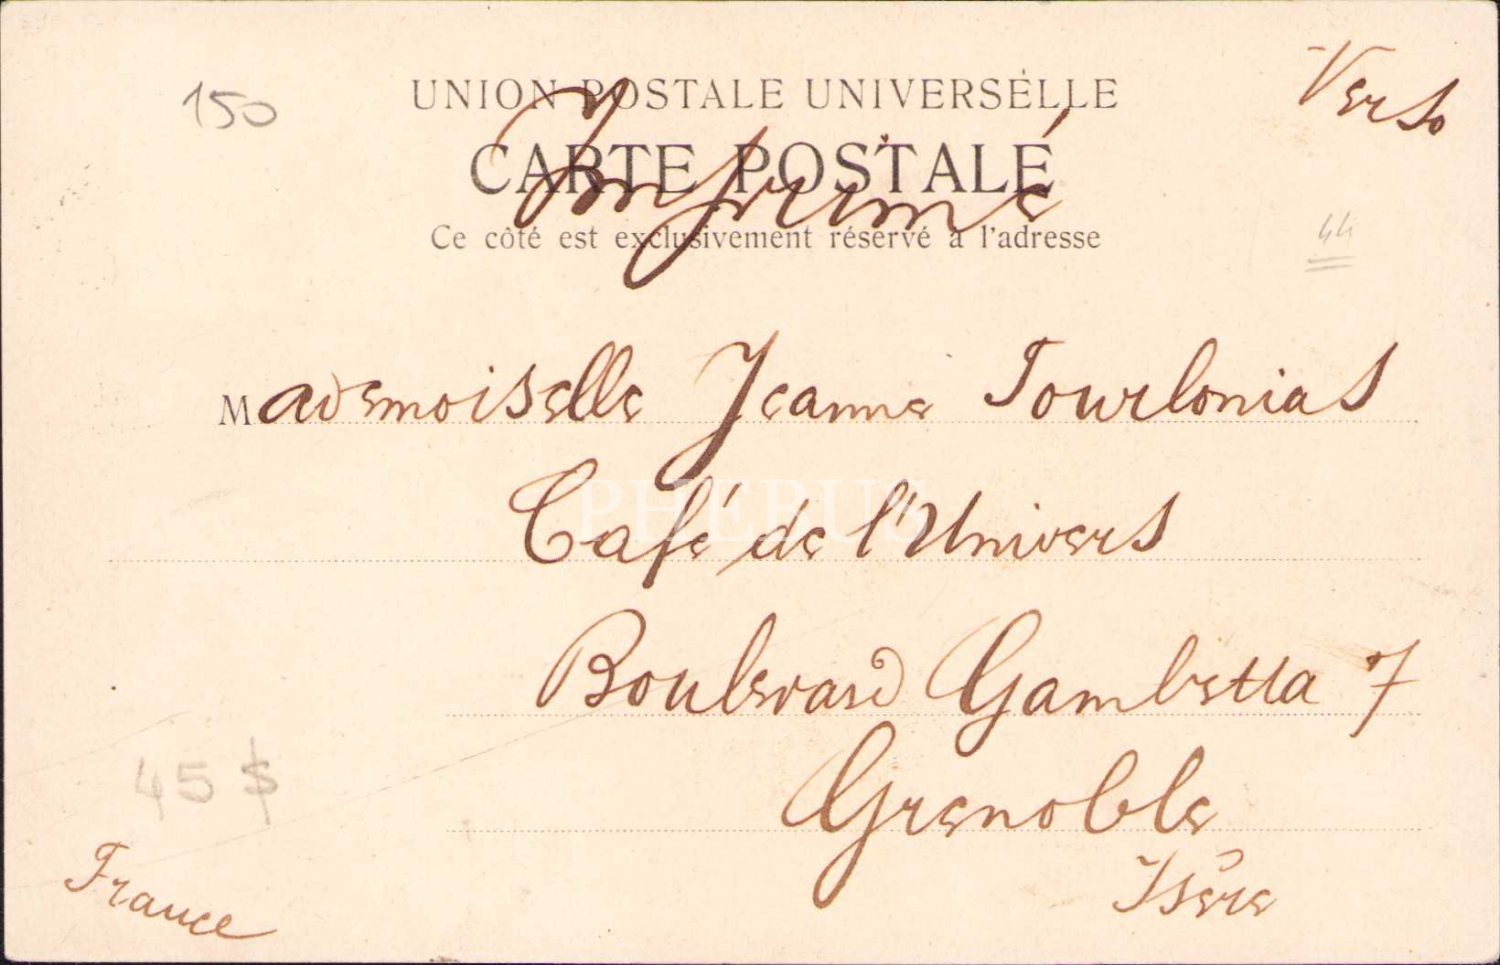 150
Verso
UNION POSTALE UNIVERSELLE
CARTE POSTALE
Imprimé
Ce côté est exclusivement réservé à l'adresse
44
Mademoiselle Jeanne Tourlonias
PHEBUS
Café de l'Univers
Boulevard Gambetta 7
45 $
Grenoble
Isère
France